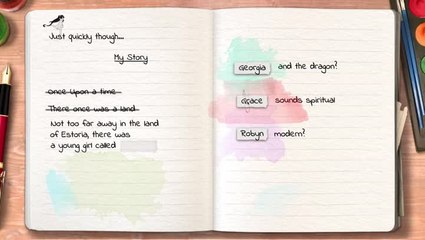 Just quickly though...
My Story
Once Upon a time
There once was a land
Not too far away in the land
of Estoria, there was
a young girl called
Georgia and the dragon?
Grace sounds spiritual
Robyn modern?